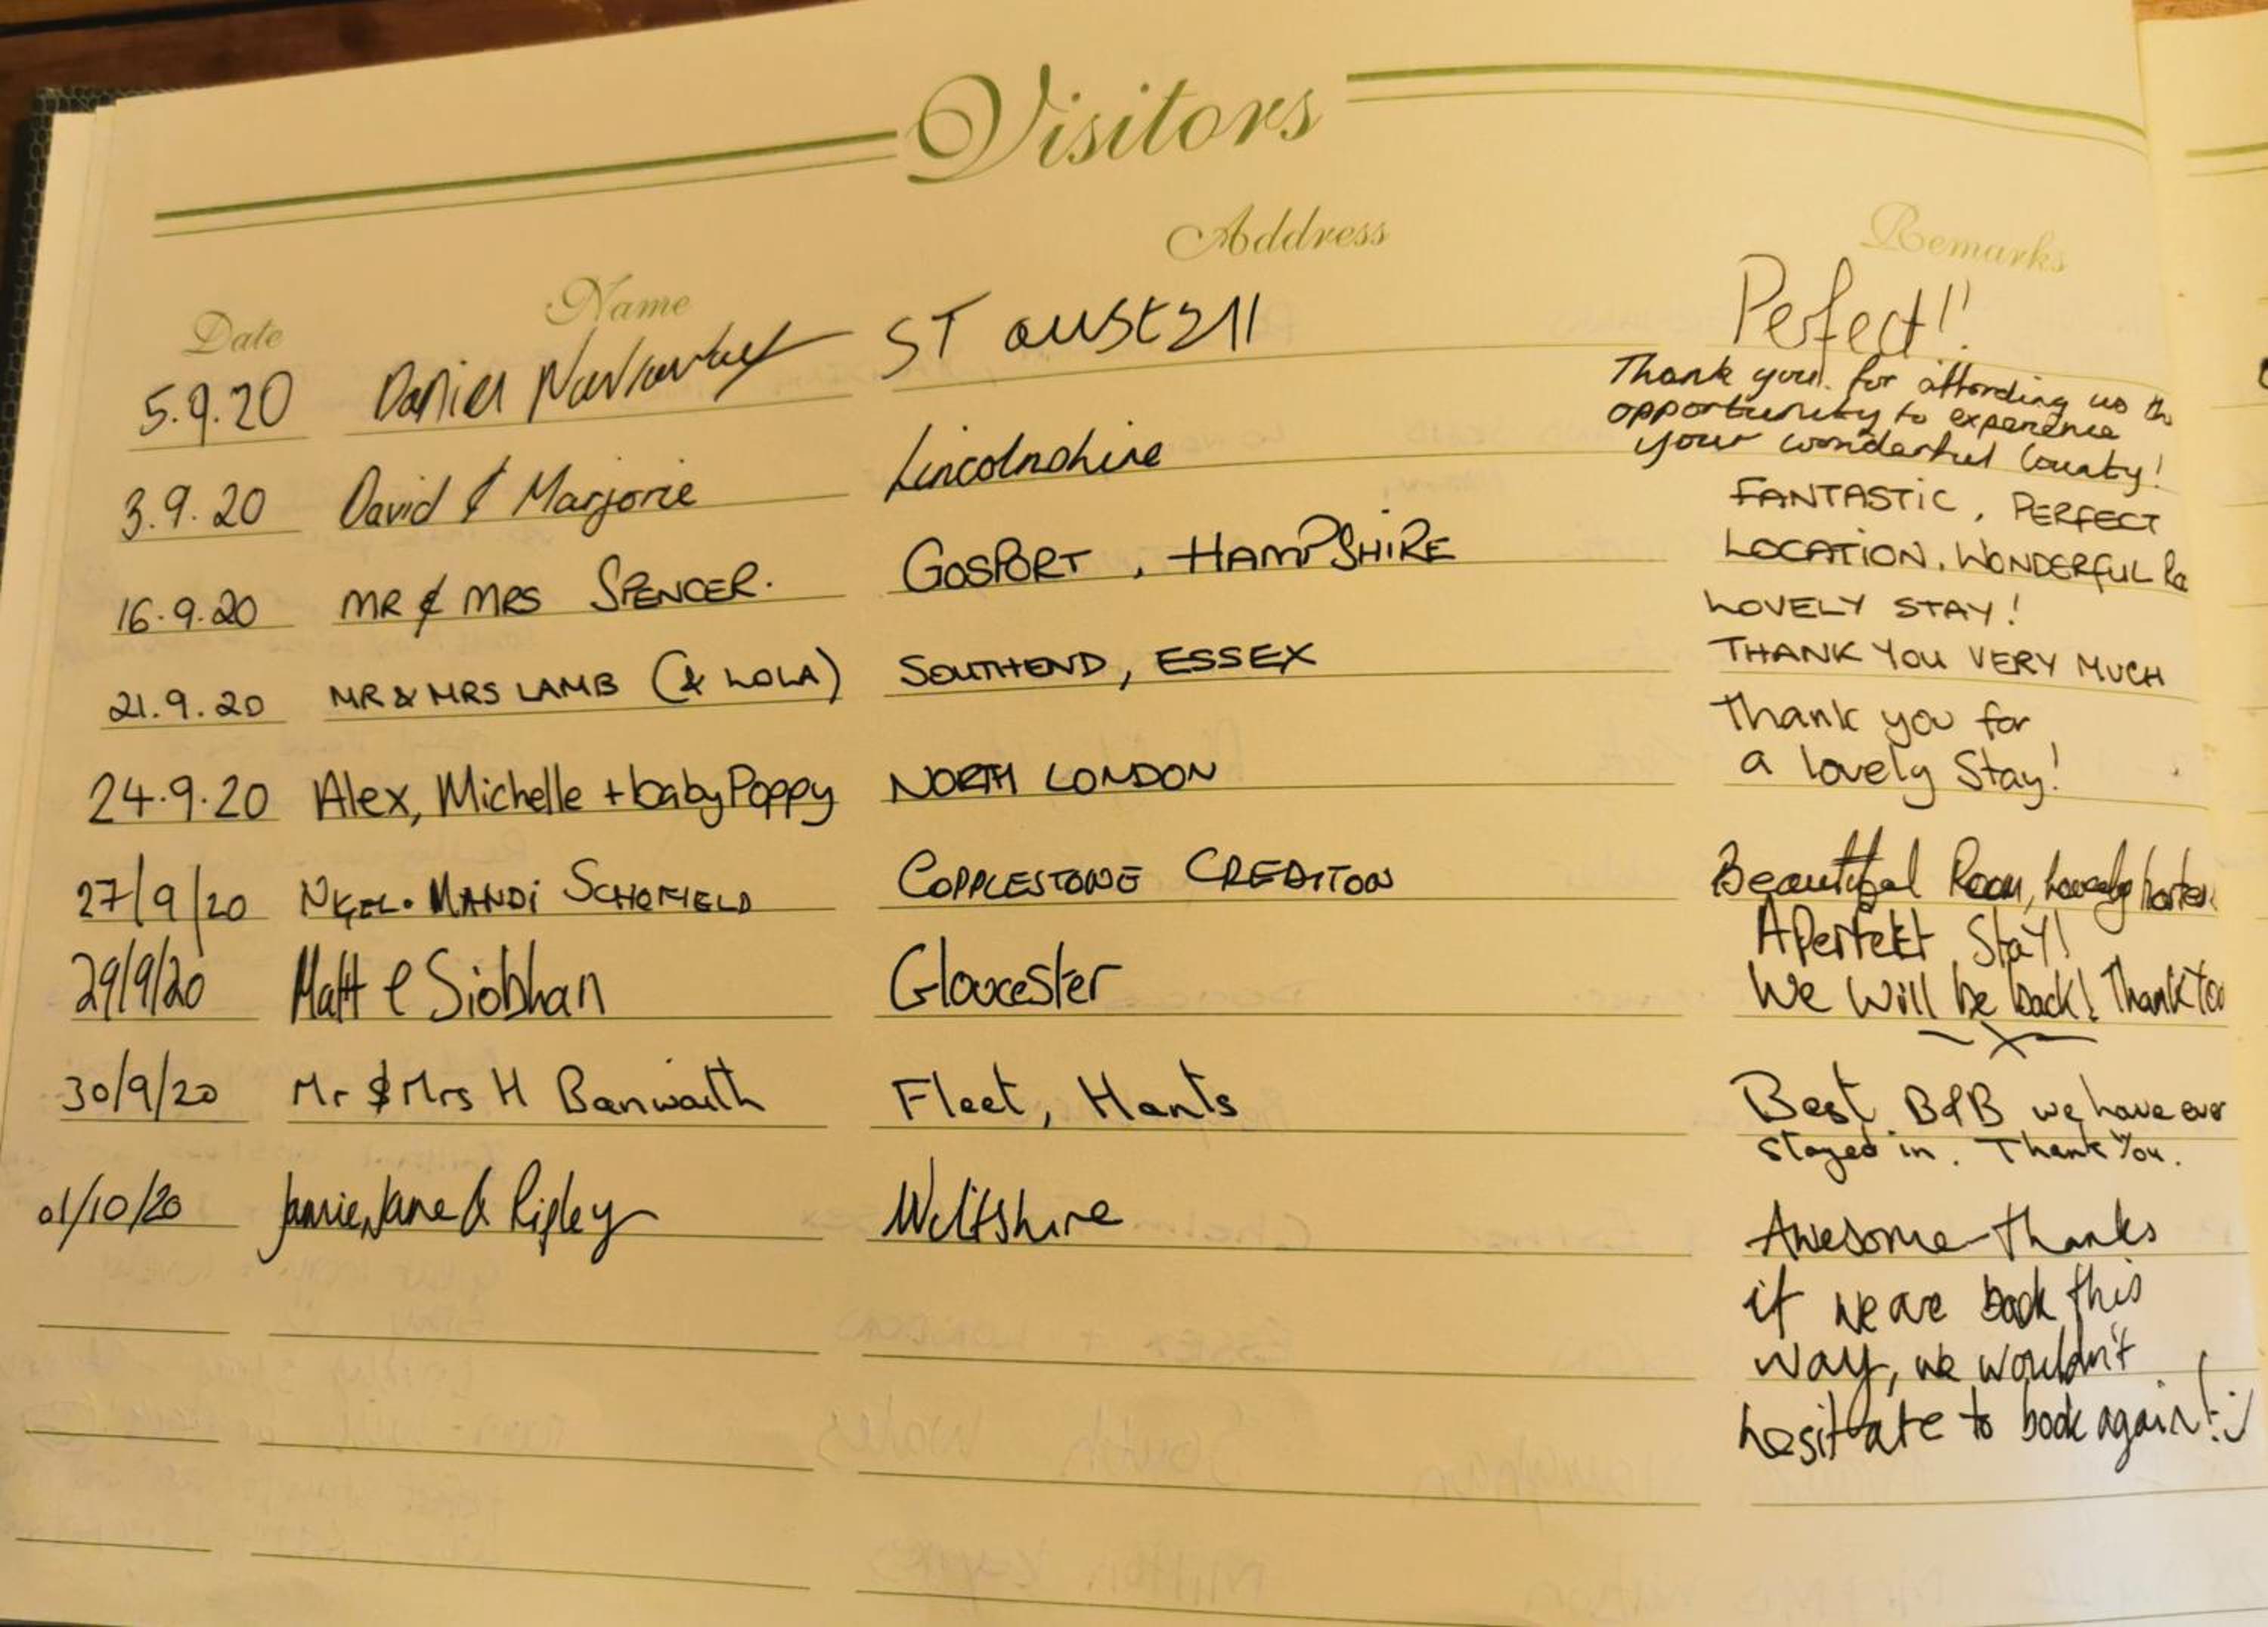 Visitors
Date Name Address Remarks
5.9.20 Daniel ST austell Perfect!!
3.9.20 David & Marjorie Lincolnshire Thank you for affording us the
opportunity to experience
your wonderful County!
16.9.20 MR & MRS SPENCER. GOSPORT, HAMPSHIRE FANTASTIC, PERFECT
LOCATION. WONDERFUL
21.9.20 MR & MRS LAMB (& LOLA) SOUTHEND, ESSEX LOVELY STAY!
THANK YOU VERY MUCH
24.9.20 Alex, Michelle + baby Poppy NORTH LONDON Thank you for
a lovely Stay!
27/9/20 MANDi SCHOFIELD COPPLESTONE CREDITON Beautiful Room, Lovely hosts.
29/9/20 Matt & Siobhan Gloucester A Perfekt Stay!
We Will be back! Thank You
X
30/9/20 Mr & Mrs H Banwaith Fleet, Hants Best B&B we have ever
stayed in. Thank You.
01/10/20 Jamie, Jane & Ripley Wiltshire Awesome-thanks
if we are back this
way, we wouldn't
hesitate to book again! :)